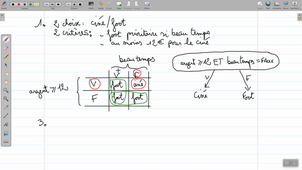 1. 2 choix : ciné / foot
2 critères : - foot prioritaire si beau temps
- au moins 12€ pour le ciné
beau temps
argent ≥ 12 ET beau temps = Faux
V F
argent ≥ 12
V foot ciné
F foot foot
V F
Ciné Foot
3.